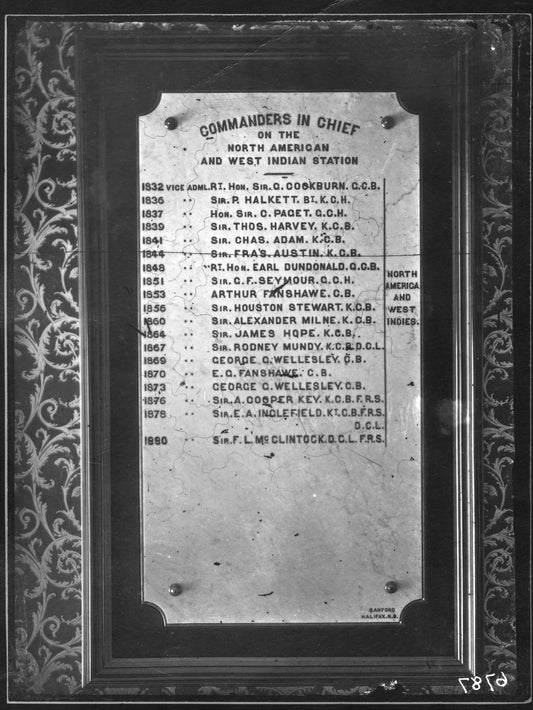 COMMANDERS IN CHIEF
ON THE
NORTH AMERICAN
AND WEST INDIAN STATION
1832 VICE ADML. RT. HON. SIR. G. COCKBURN. G.C.B.
1836 " SIR. P. HALKETT. BT. K.C.H.
1837 " HON. SIR. C. PAGET. G.C.H.
1839 " SIR. THOS. HARVEY. K.C.B.
1841 " SIR. CHAS. ADAM. K.C.B.
1844 " SIR. FRAS. AUSTIN. K.C.B.
1848 " RT. HON. EARL DUNDONALD. G.C.B.
1851 " SIR. G. F. SEYMOUR. G.C.H.
1853 " ARTHUR FANSHAWE. C.B.
1856 " SIR. HOUSTON STEWART. K.C.B.
1860 " SIR. ALEXANDER MILNE. K.C.B.
1864 " SIR. JAMES HOPE. K.C.B.
1867 " SIR. RODNEY MUNDY. K.C.B. D.C.L.
1869 " GEORGE G. WELLESLEY. C.B.
1870 " E. G. FANSHAWE. C.B.
1873 " GEORGE G. WELLESLEY. C.B.
1876 " SIR. A. COOPER KEY. K.C.B. F.R.S.
1878 " SIR. E. A. INGLEFIELD. KT. C.B. F.R.S.
D.C.L.
1880 " SIR. F. L. MC CLINTOCK. D.C.L. F.R.S.
NORTH
AMERICA
AND
WEST
INDIES.
SANFORD
HALIFAX. N.S.
6787